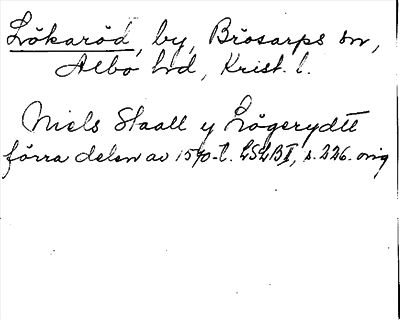 Lökaröd, by, Brösarps sn,
Albo hd, Krist. l.
Niels Staall y Løgerydtt
förra delen av 1570-t. LSLB I, s. 226. orig